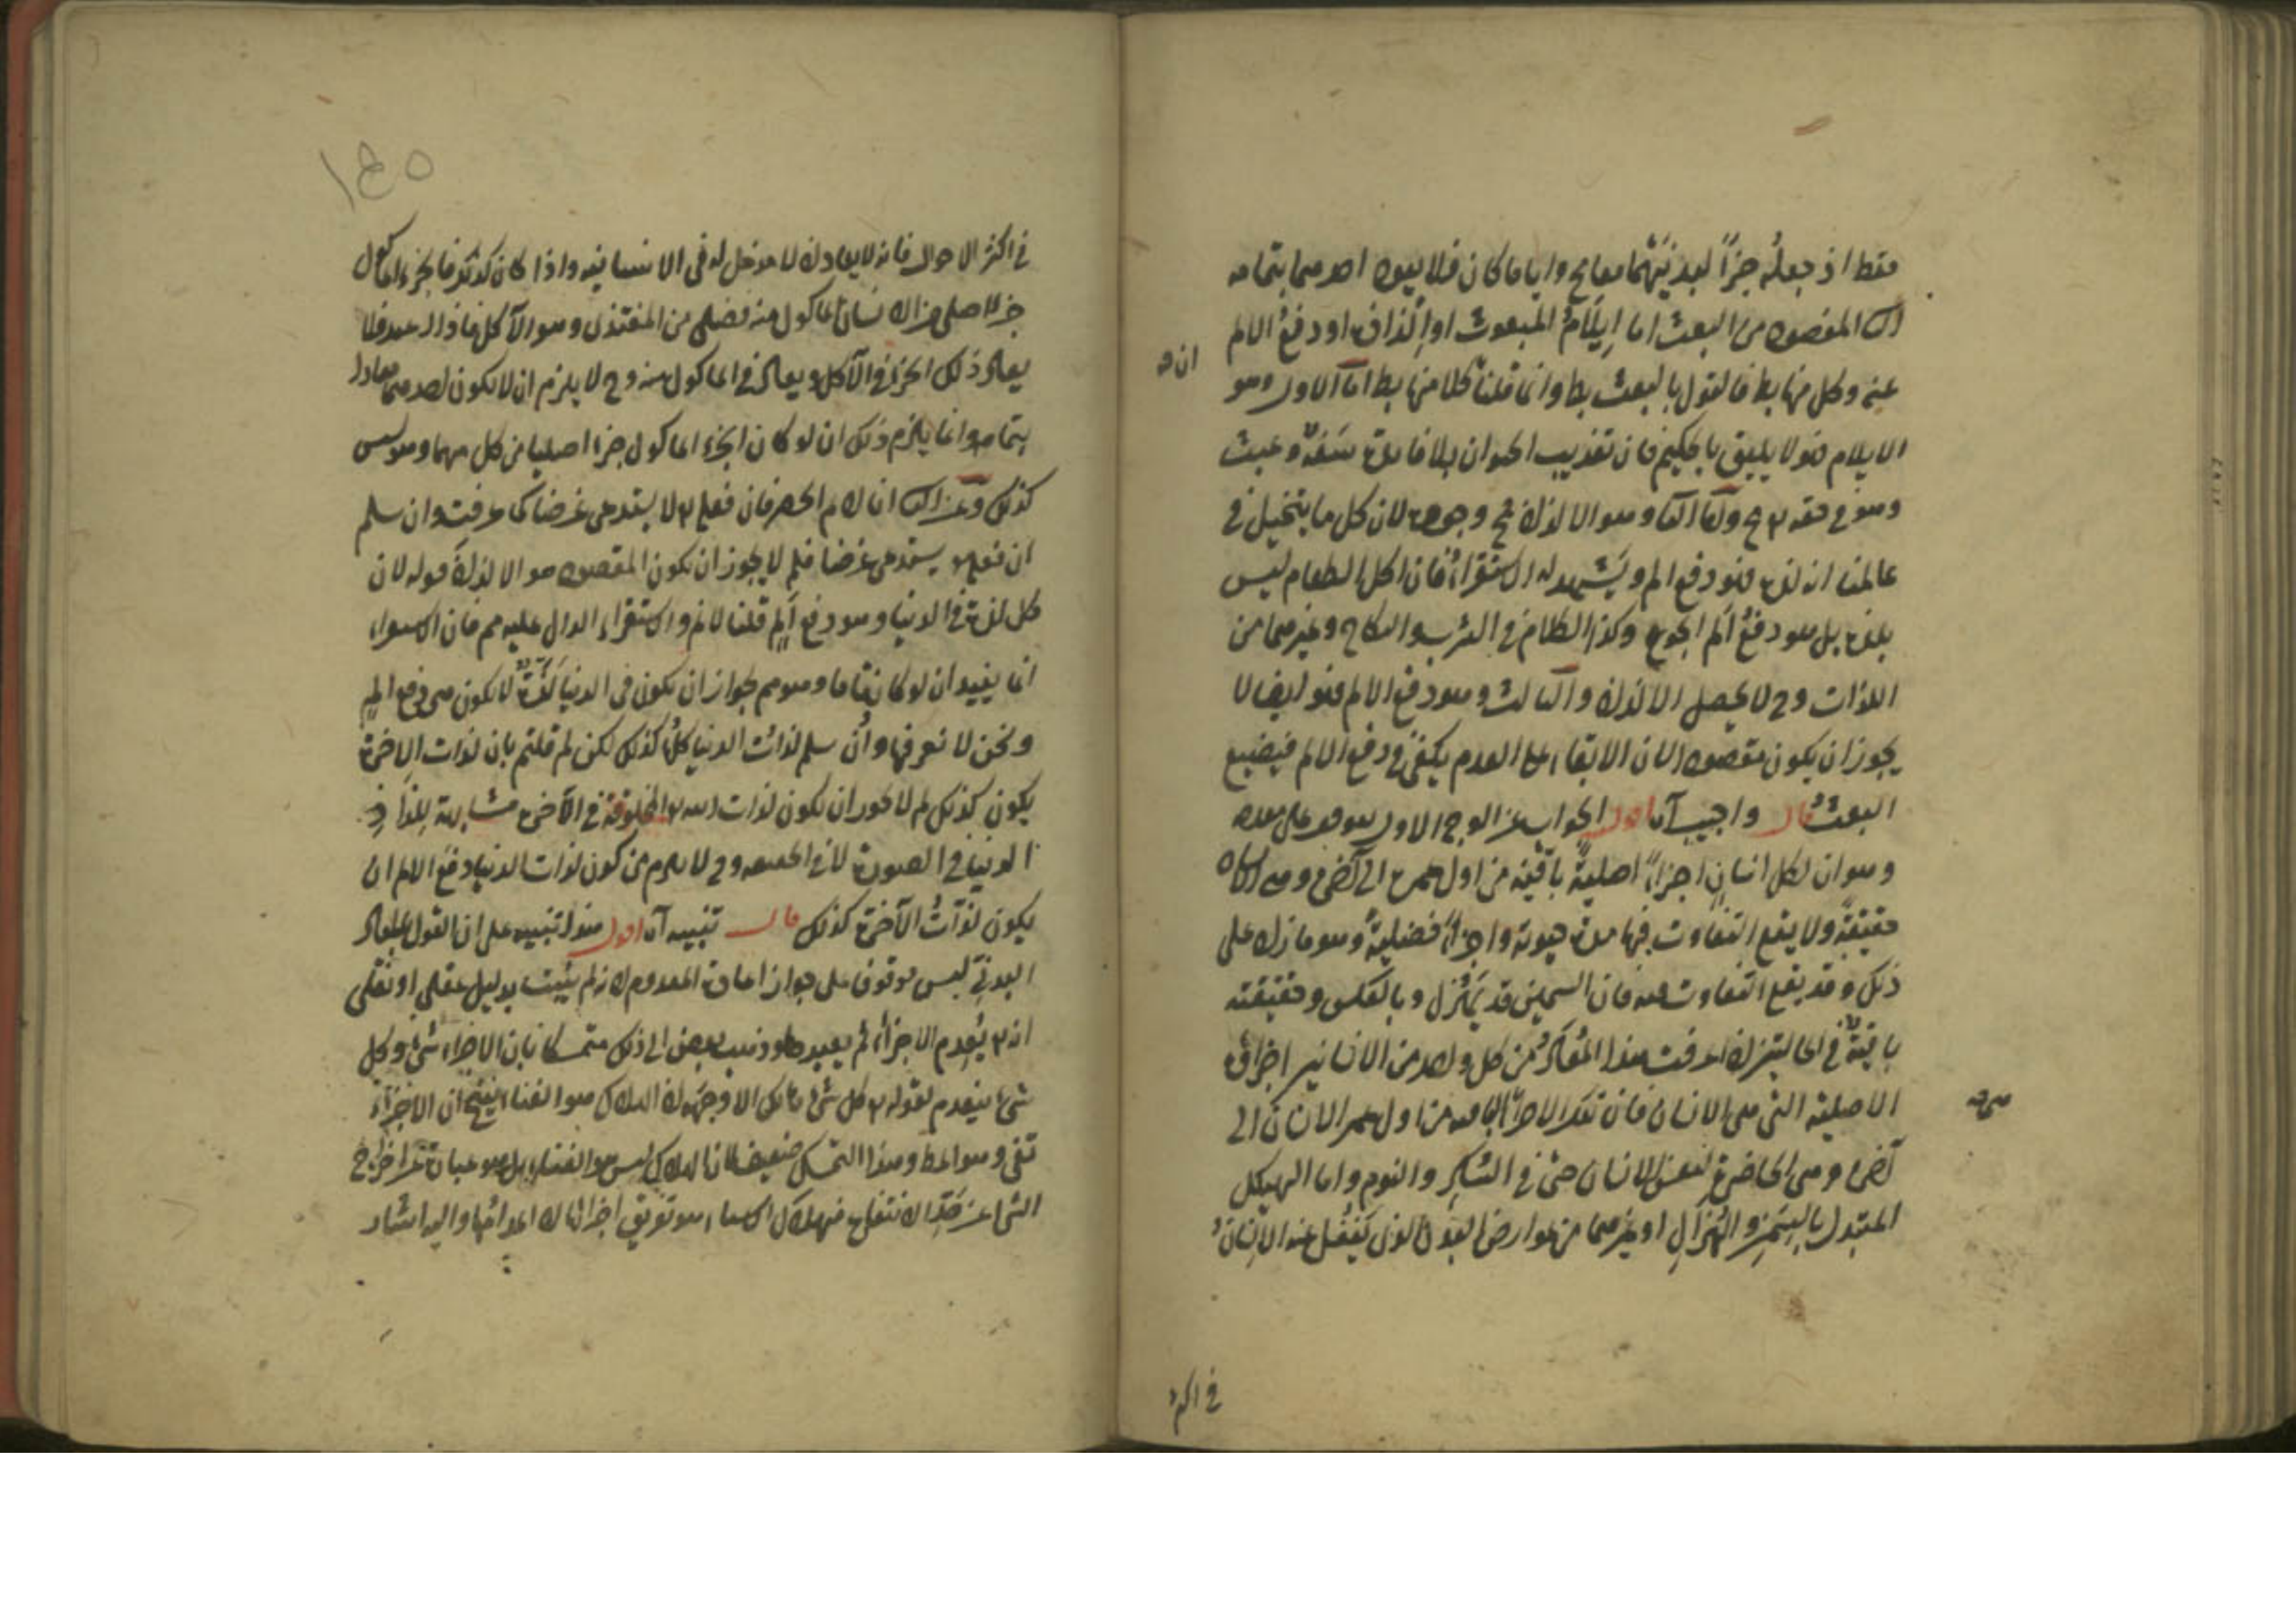 فقط اذ جعله جزأ لبدنيهما معا مح واياما كان فلا يعود احدهما بتمامه
المقصود من البعث اما ايلام المبعوث او الذاذه او دفع الالم
عنه وكل منها بط فالقول بالبعث بط وانما قلنا كلا منها بط اما الاول وهو
ان
الايلام فهو لا يليق بالحكيم فان تعذيب الحيوان بلا فائدة سفه وعبث
وهو في حقه تع مح واما الثا وهو الالذاذ فلان كل ما يتخيل في
عالمنا انه لذة فهو دفع الم ويشهد له الاستقراء فان اكل الطعام ليس
بلذة بل هو دفع الم الجوع وكذا الكلام في الشرب والنكاح وغيرهما من
اللذات وح لا يحصل الالذاذ والثالث وهو دفع الالم فهو ايضا لا
يجوز ان يكون مقصودا لان الابقاء على العدم يكفي في دفع الالم فيضيع
البعث قال واجيب آه اقول الجواب عن الوجه الاول موقوف على مقدمه
وهو ان لكل انسان اجزاء اصلية باقية من اول عمره الى آخره وهي الانسان
حقيقة ولا يقع التفاوت فيها مدة حيوته واجزاء فضلية وهو ما زاد على
ذلك وقد يقع التفاوت فيه فان السمين قد يهزل وبالعكس وحقيقته
باقية في الحالتين اذا عرفت هذا المعاد من كل واحد من الانسانين اجزاؤه
الاصلية التي هي الانسان فان تلك الاجزاء الباقية من اول عمر الانسان الى
هي
آخره وهي الحاضرة لنفس الانسان حتى في السكر والنوم واما الهيكل
المتبدل بالسمن والهزال او غيرهما من عوارض البدن الذي يغفل عنه الانسان
في اكثر
١٤٥
في اكثر الاحوال فانه لا يعاد اذ لا مدخل له في الانسانية واذا كان كذلك فالجزء المأكول
جزء اصلي من الانسان المأكول منه فضلي من المغتذي وهو الآكل فلا
يعاد ذلك الجزء في الآكل ويعاد في المأكول منه وح لا يلزم ان لا يكون احدهما معادا
بتمامه وانما يلزم ذلك ان لو كان الجزء المأكول جزء اصليا من كل منهما وهو ليس
كذلك وعن الثا انا لانم الحصر فان فعله تع لا يستدعي غرضا كما عرفت وان سلم
ان فعله يستدعي غرضا فلم لا يجوز ان يكون المقصود هو الالذاذ قوله لان
كل لذة في الدنيا وهو دفع الم قلنا لانم والاستقراء الدال عليه مم فان الاستقراء
انما يفيد ان لو كان تاما وهو مم لجواز ان يكون في الدنيا لذة لا يكون هي دفع الم
ونحن لا نعرفها وان سلم لذات الدنيا كلها كذلك لكن لم قلتم بان لذات الآخرة
يكون كذلك لم لا يجوز ان يكون لذات المخلوقة في الآخرة مشابهة للذات
الدنيا في الصورة لا في الحقيقة وح لا يلزم من كون لذات الدنيا دفع الالم ان
يكون لذات الآخرة كذلك قال تنبيه آه اقول هذا تنبيه على ان القول بالمعاد
البدني ليس موقوف على جواز اعادة المعدوم اذ لم يثبت بدليل عقلي او نقلي
انه تع يعدم الاجزاء ثم يعيدها وذهب بعض الى ذلك متمسكا بان الاجزاء شيء وكل
شيء ينعدم لقوله تع كل شيء هالك الا وجهه اذ الهلاك هو الفناء ينتج ان الاجزاء
تفنى وهو المط وهذا التمسك ضعيف لانا الهلاك ليس هو الفناء بل هو عبارة عن اخراج
الشي عن حد الانتفاع فهلاك الاشياء هو تفريق اجزائها لا اعدامها واليه اشار